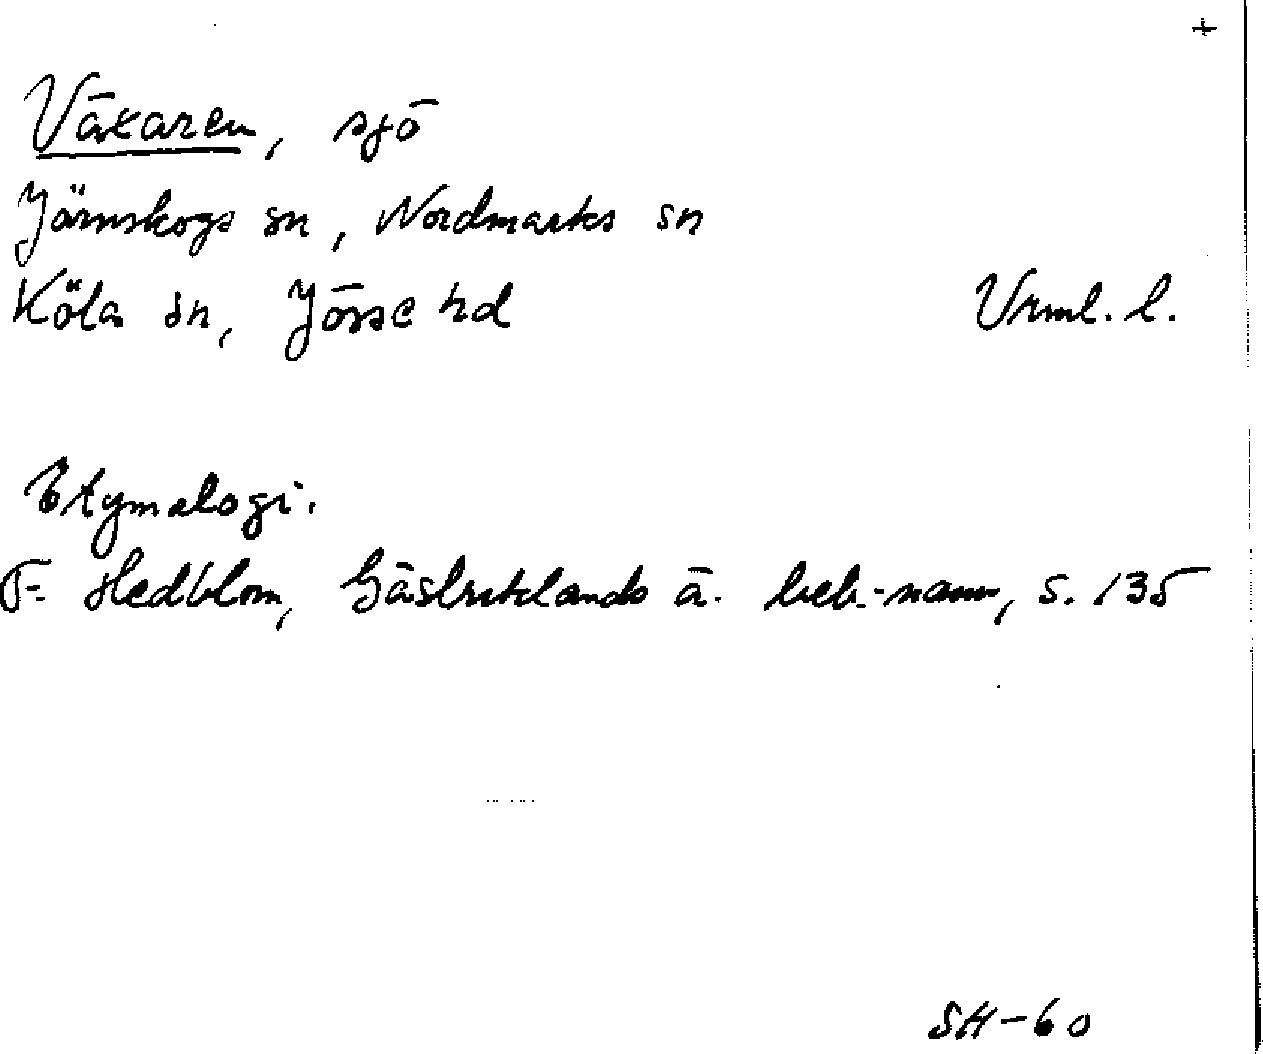 +
Växaren, sjö
Järnskogs sn, Nordmarks sn
Köla sn, Jösse hd Vrml. l.
Etymologi.
F. Hedblom, Gästriklands ä. beb.-namn, s. 135
SH-60